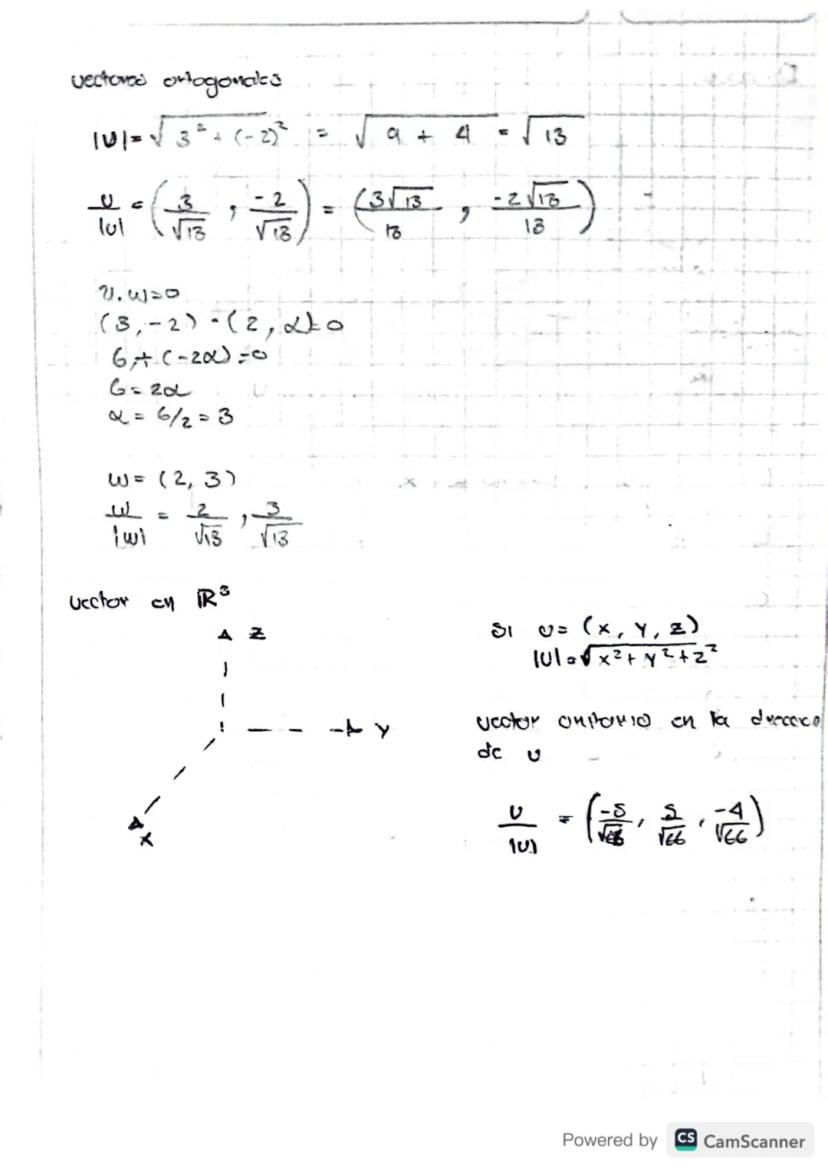 vectores ortogonales
|U| = √3² + (-2)² = √9 + 4 = √13
U/|U| = (3/√13 , -2/√13) = (3√13/13 , -2√13/13)
v.w=0
(3,-2) · (2, α)=0
6 + (-2α) = 0
6 = 2α
α = 6/2 = 3
w = (2, 3)
w/|w| = 2/√13 , 3/√13
vector en ℝ³
Z
Y
X
Si v = (x, y, z)
|U| = √x² + y² + z²
vector unitario en la direcco
de v
U/|U| = (-5/√66 , 5/√66 , -4/√66)
Powered by CS CamScanner